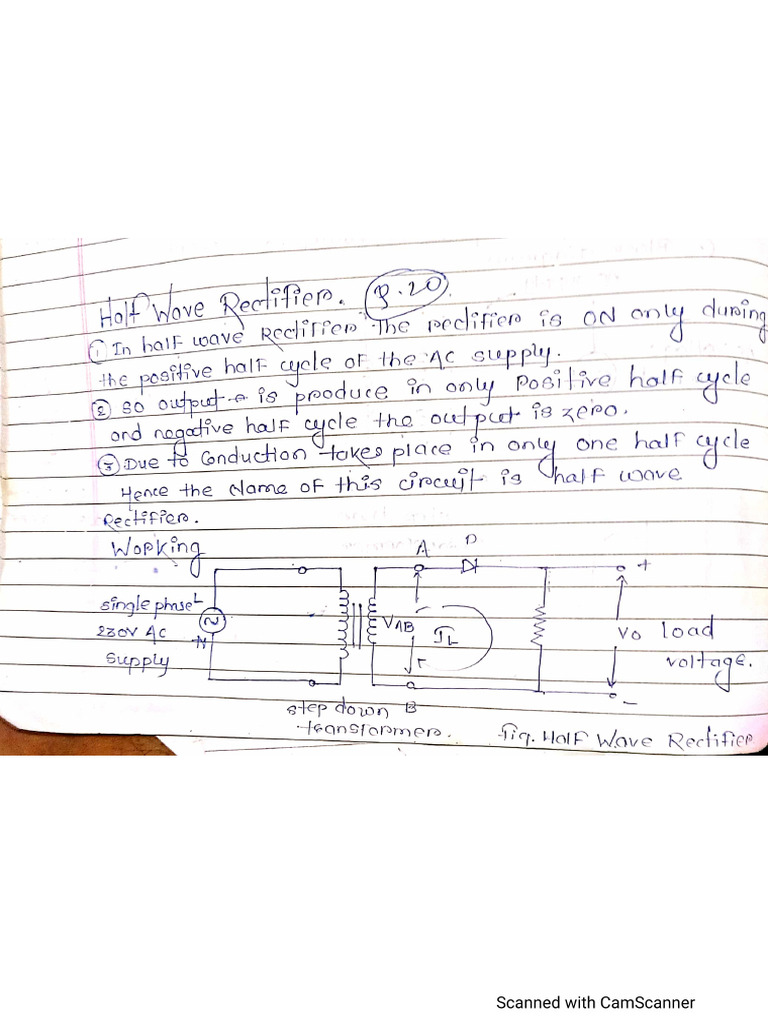 Half Wave Rectifier. P.20
① In half wave Rectifier The rectifier is ON only during
the positive half cycle of the AC supply.
② so output is produce in only Positive half cycle
and negative half cycle the output is zero.
③ Due to Conduction takes place in only one half cycle
Hence the Name of this circuit is half wave
Rectifier.
Working
A D
+
single phase L
230V AC
N
supply
VAB IL
Vo load
voltage.
+
-
step down B
transformer.
fig. Half Wave Rectifier
Scanned with CamScanner